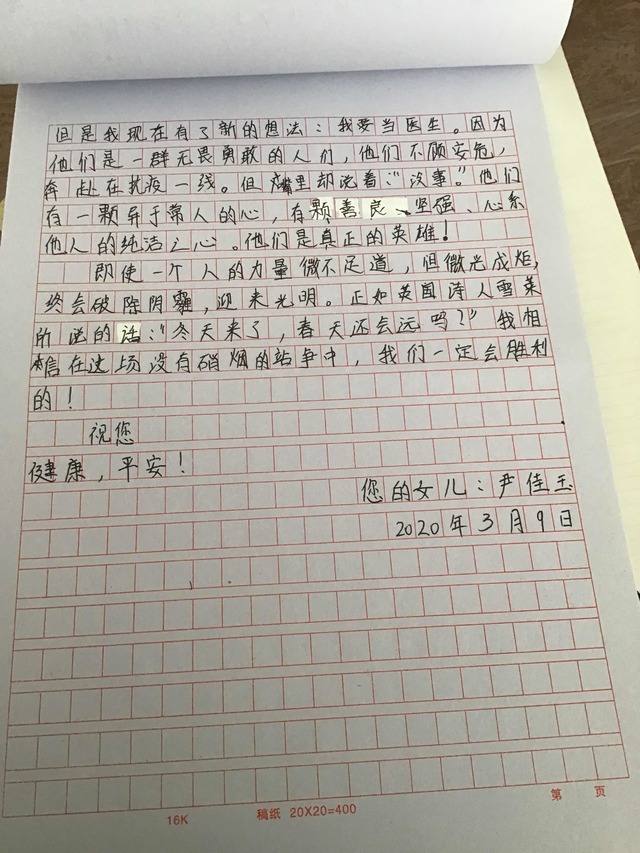 但是我现在有了新的想法：我要当医生。因为
他们是一群无畏勇敢的人们，他们不顾安危，
奔赴在抗疫一线。但嘴里却说着：“没事。”他们
有一颗异于常人的心，有颗善良、坚强、心系
他人的纯洁之心。他们是真正的英雄！
即使一个人的力量微不足道，但微光成炬，
终会破除阴霾，迎来光明。正如英国诗人雪莱
所说的话：“冬天来了，春天还会远吗？”我相
信在这场没有硝烟的站争中，我们一定会胜利
的！
祝您
健康，平安！
您的女儿：尹佳玉
2020年3月9日
16K 稿纸 20X20=400 第 页